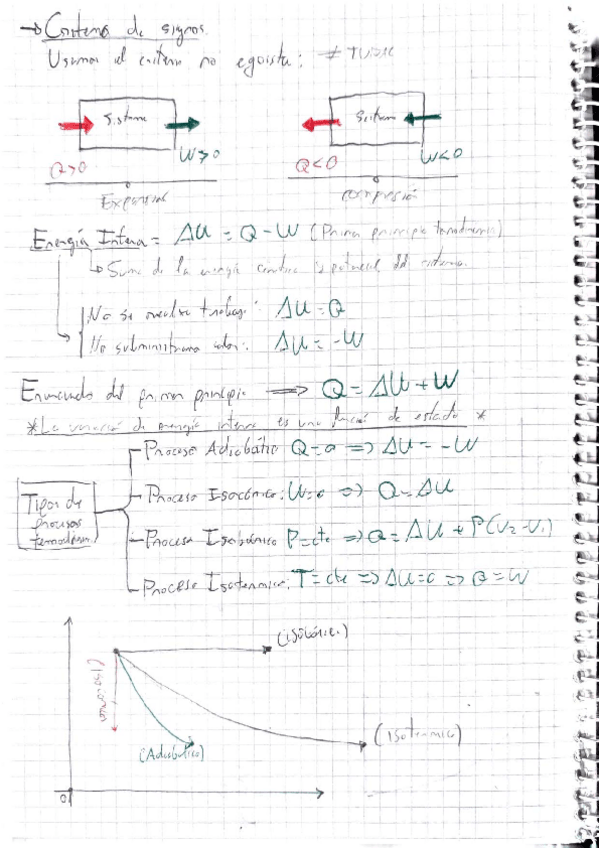 → Criterio de signos.
Usamos el criterio no egoista: ≠ IUPAC
Sistema
Q>0
W>0
Expansión
Sistema
Q<0
W<0
compresión
Energía Interna = ΔU = Q-W (Primer principio termodinámica)
Suma de la energía cinética y potencial del sistema.
No se realiza trabajo: ΔU=Q
No subministramos calor: ΔU=-W
Enunciado del primer principio ⟹ Q=ΔU+W
*La variación de energía interna es una función de estado *
Tipos de procesos termodinám.
Proceso Adiabático Q=0 => ΔU=-W
Proceso Isocórico: W=0 => Q=ΔU
Proceso Isobárico P=cte => Q=ΔU+P(V2-V1)
Proceso Isotermico: T=cte => ΔU=0 => Q=W
(isobárico)
(isocórico)
(Adiabático)
(isotermico)
0